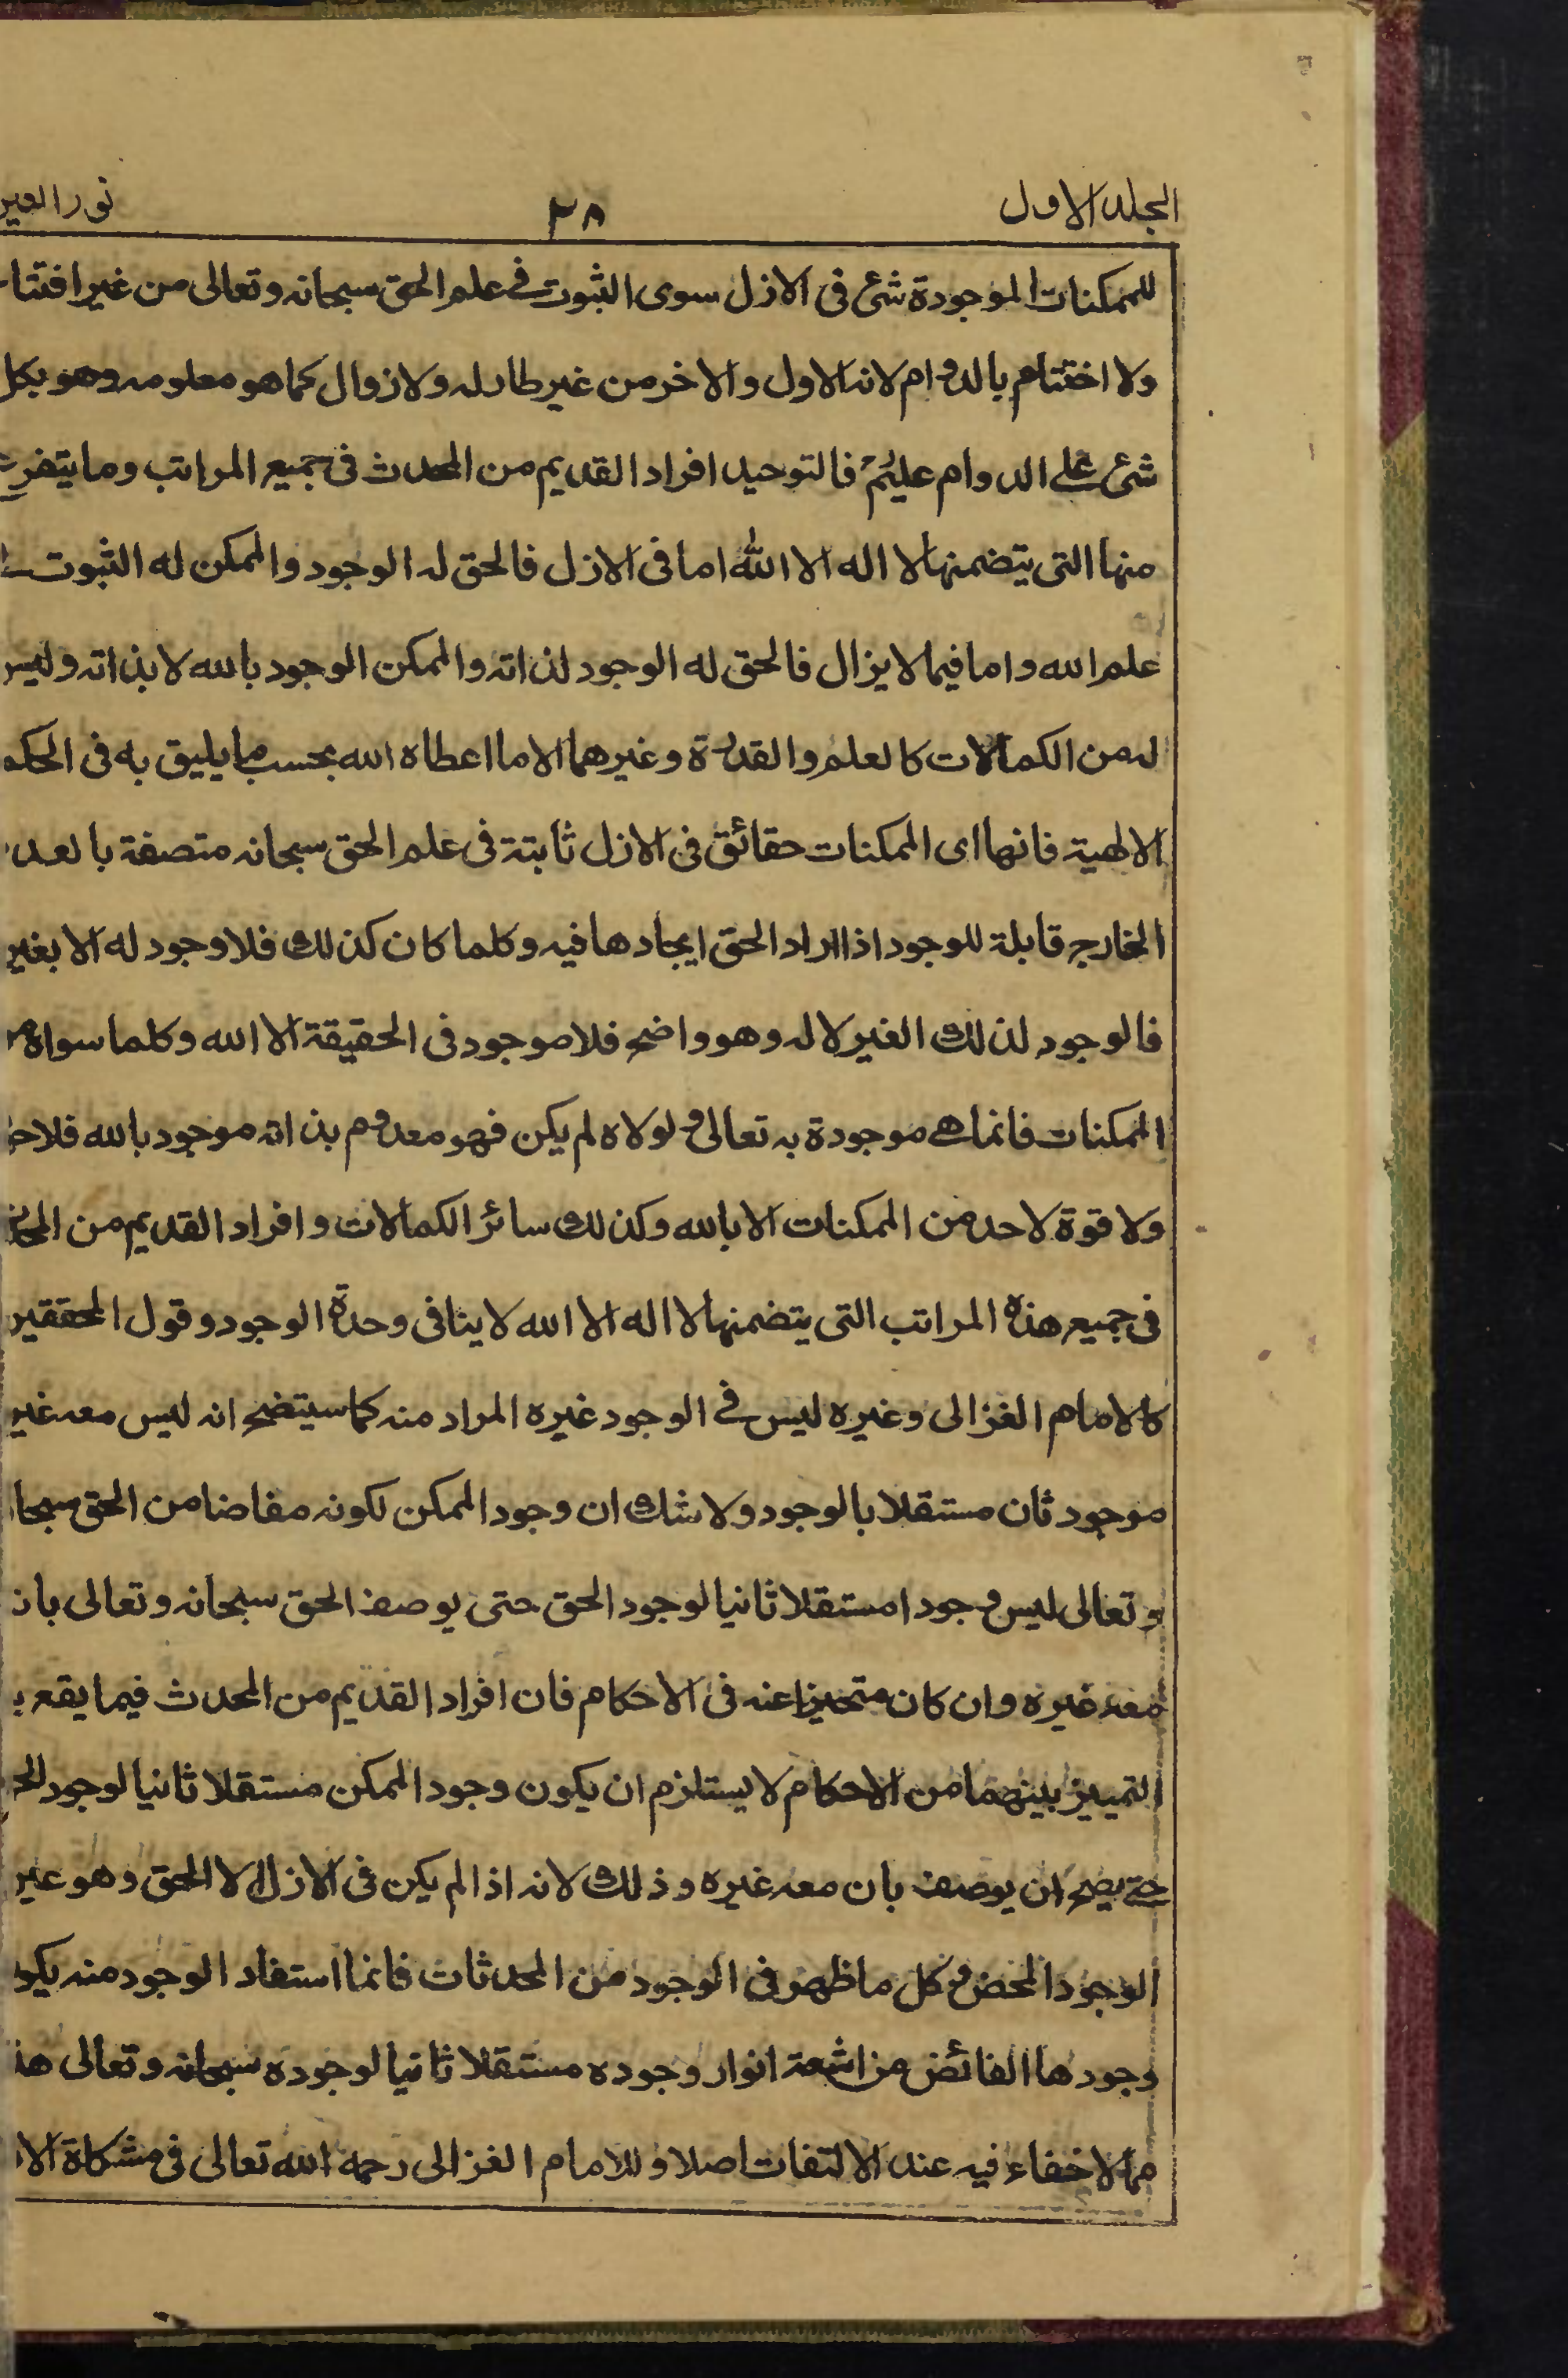 الجلد الاول ٣٨ نور العير
للممكنات الموجودة شئ فى الازل سوى الثبوت فے علم الحق سبحانه وتعالى من غير افتتا
ولا اختتام بالدوام لانه الاول والاخر من غير طار له ولا زوال كما هو معلومه وهو بكل
شئ على الدوام عليم فالتوحيد افراد القديم من المحدث فى جميع المراتب وما يتفرع
منها التى يتضمنها لا اله الا الله اما فى الازل فالحق له الوجود والممكن له الثبوت
علم الله واما فيما لا يزال فالحق له الوجود لذاته والممكن الوجود بالله لا بذاته وليس
له من الكمالات كالعلم والقدرة وغيرهما الا ما اعطاه الله بحسب ما يليق به فى الحكم
الالهية فانها اى الممكنات حقائق فى الازل ثابتة فى علم الحق سبحانه متصفة بالعد
الخارج قابلة للوجود اذا اراد الحق ايجادها فيه وكلما كان كذلك فلا وجود له الا بغير
فالوجود لذلك الغير لا له وهو واضح فلا موجود فى الحقيقة الا الله وكلما سواه م
الممكنات فانما هے موجودة به تعالى ولولاه لم يكن فهو معدوم بذاته موجود بالله فلا حو
ولا قوة لاحد من الممكنات الا بالله وكذلك سائر الكمالات وافراد القديم من المحد
فى جميع هذه المراتب التى يتضمنها لا اله الا الله لا ينافى وحدة الوجود وقول المحققير
كالامام الغزالى وغيره ليس فے الوجود غيره المراد منه كما سيتضح انه ليس معه غير
موجود ثان مستقلا بالوجود ولا شك ان وجود الممكن لكونه مفاضا من الحق سبحا
وتعالى ليس وجودا مستقلا ثانيا لوجود الحق حتى يوصف الحق سبحانه وتعالى بان
معه غيره وان كان متحيزا عنه فى الاحكام فان افراد القديم من المحدث فيما يقع ب
التمييز بينهما من الاحكام لا يستلزم ان يكون وجود الممكن مستقلا ثانيا لوجود الح
حتے يصح ان يوصف بان معه غيره وذلك لانه اذا لم يكن فى الازل الا الحق وهو عير
الوجود المحض وكل ما ظهر فى الوجود من المحدثات فانما استفاد الوجود منه يكو
وجودها الفائض من اشعة انوار وجوده مستقلا ثانيا لوجوده سبحانه وتعالى هذ
مما لا خفاء فيه عند الالتفات اصلا وللامام الغزالى رحمه الله تعالى فى مشكاة الا